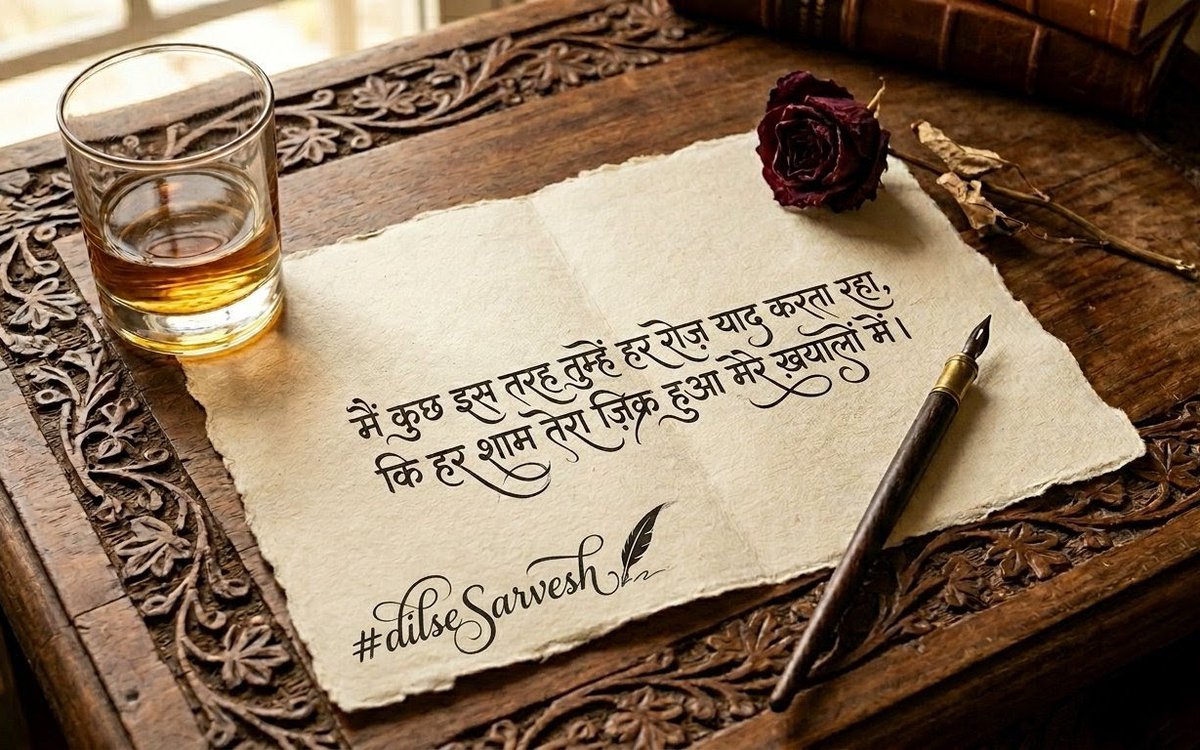 मैं कुछ इस तरह तुम्हें हर रोज़ याद करता रहा,
कि हर शाम तेरा ज़िक्र हुआ मेरे ख़यालों में।
#dilseSarvesh